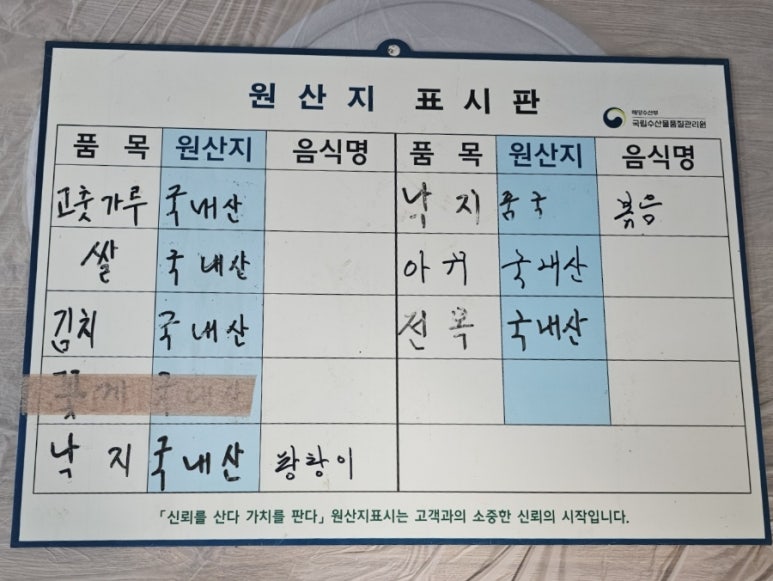 원산지 표시판
해양수산부
국립수산물품질관리원
품목 원산지 음식명 품목 원산지 음식명
고춧가루 국내산 낙지 중국 볶음
쌀 국내산 아귀 국내산
김치 국내산 전복 국내산
꽃게 국내산
낙지 국내산 탕탕이
「신뢰를 산다 가치를 판다」 원산지표시는 고객과의 소중한 신뢰의 시작입니다.